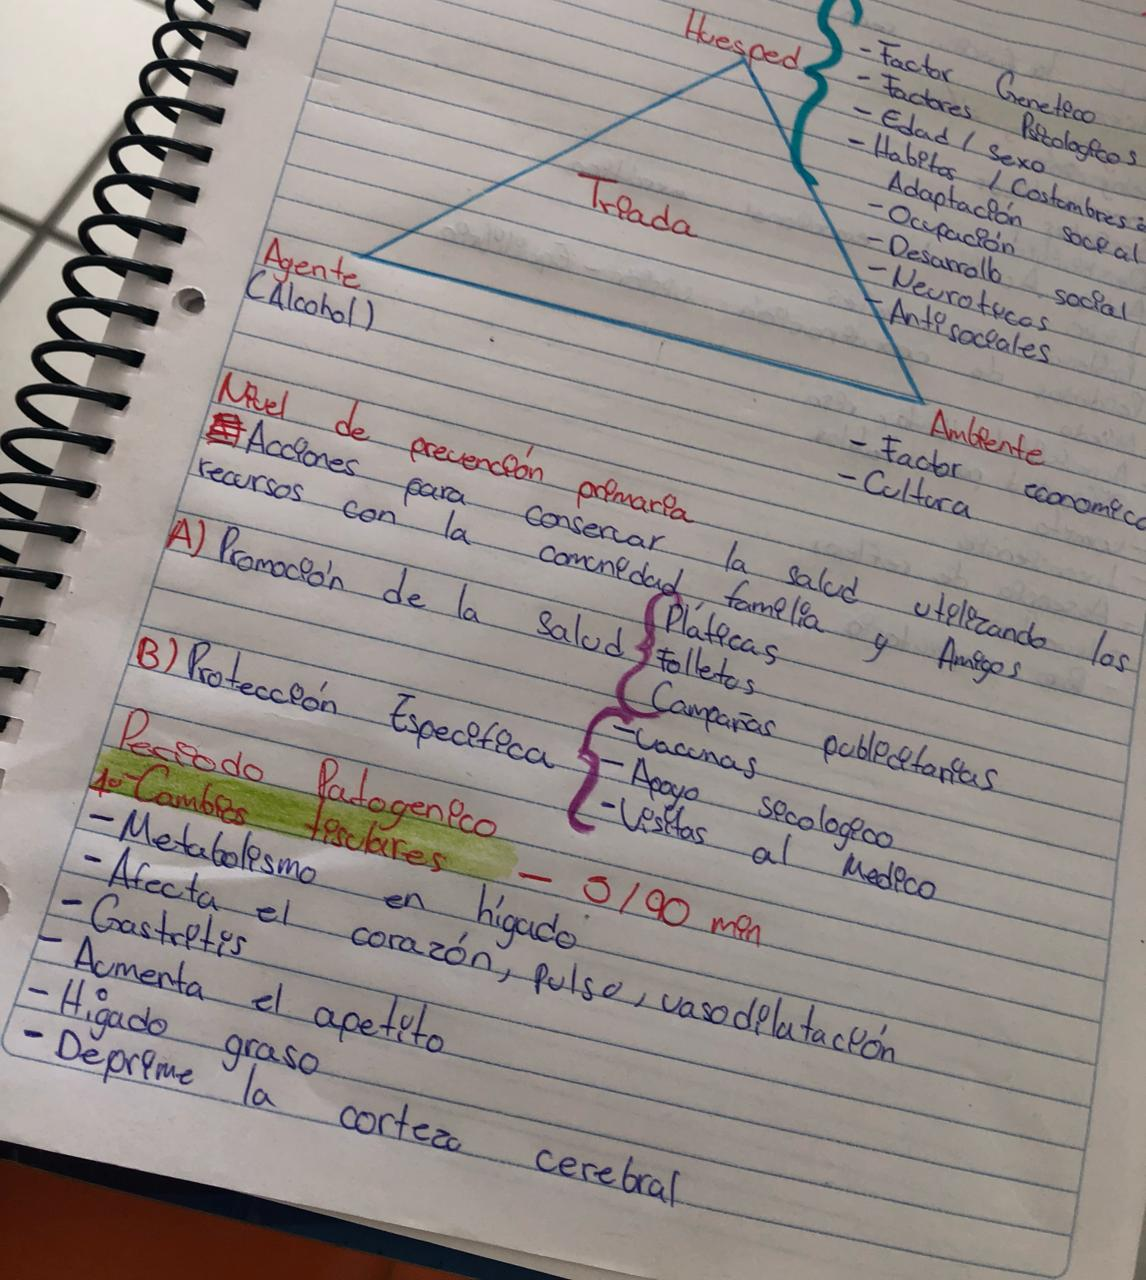 Huesped
- Factor Genetico
- Factores Psicologicos
- Edad / sexo
- Habitos / Costumbres
Adaptación social
- Ocupación
- Desarrollo social
- Neuroticas
- Antisociales
Triada
Agente
(Alcohol)
Ambiente
- Factor economic
- Cultura
Nivel de prevención primaria
Acciones para conservar la salud utilizando los
recursos con la comunidad, familia y Amigos
A) Promoción de la salud
Pláticas
Folletos
Campañas publicitarias
B) Protección Especifica
- Vacunas
- Apoyo sicologico
- Visitas al Medico
Periodo Patogenico
1.- Cambios tisulares - 0/90 min
- Metabolismo en hígado
- Afecta el corazón, pulso, vasodilatación
- Gastritis
- Aumenta el apetito
- Hígado graso
- Deprime la corteza cerebral